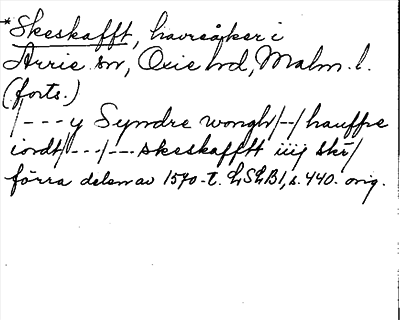 *Skeskafft, havreåker i
Arrie sn, Oxie hd, Malm. l.
(forts.)
/---y Syndre wongh/--/hauffre
iordt/---/---skeskafftt iiij skr/
förra delen av 1570-t. LSLB1, s. 440. orig.